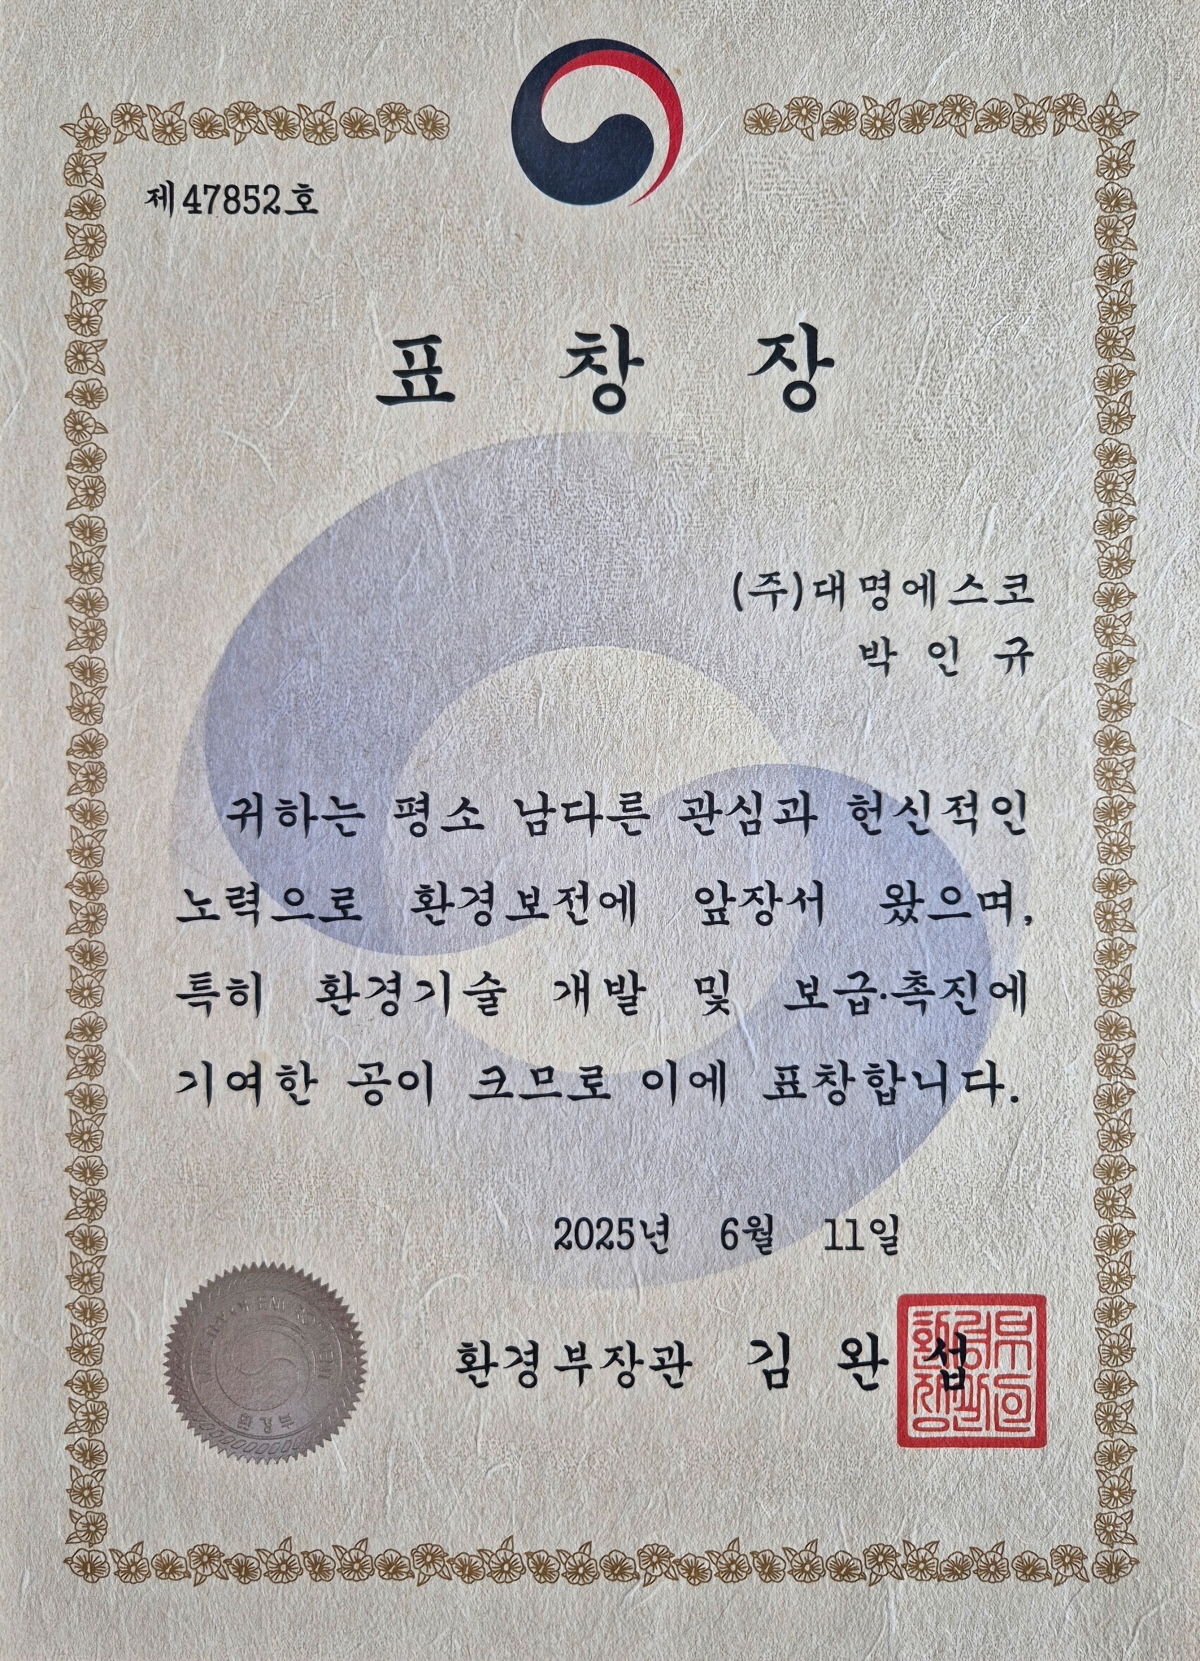 제47852호
표 창 장
(주)대명에스코
박 인 규
귀하는 평소 남다른 관심과 헌신적인
노력으로 환경보전에 앞장서 왔으며,
특히 환경기술 개발 및 보급·촉진에
기여한 공이 크므로 이에 표창합니다.
2025년 6월 11일
환경부장관 김 완 섭